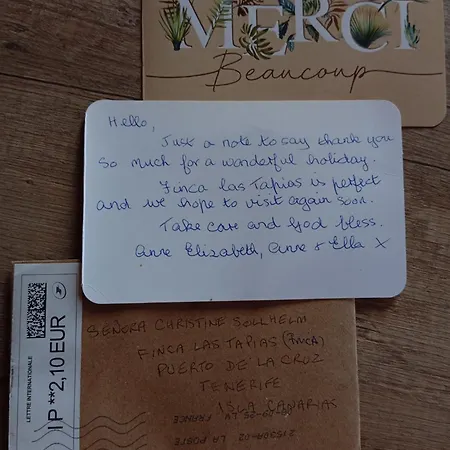 MERCI
Beaucoup
Hello,
Just a note to say thank you
so much for a wonderful holiday.
Finca las Tapias is perfect
and we hope to visit again soon.
Take care and God bless.
Anne Elizabeth, Anne & Ella X
LETTRE INTERNATIONALE
IP **2,10 EUR
SEÑORA CHRISTINE SOLLHELM
FINCA LAS TAPIAS (FINCA)
PUERTO DE LA CRUZ
TENERIFE
ISLA CANARIAS
FRANCE
LA POSTE